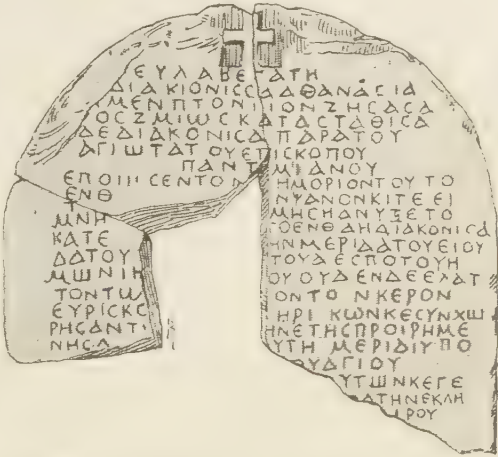 ΕΥΛΑΒΕϹΑΤΗ
ΔΙΑΚΙΟΝΙϹϹΑΑΘΑΝΑϹΙΑ
ΜΕΝΠΤΟΝΤΙΟΝΖΗϹΑϹΑ
ΟϹΖΜΙΩϹΚΑΤΑϹΤΑΘΙϹΑ
ΔΕΔΙΑΚΟΝΙϹΑΠΑΡΑΤΟΥ
ΑΓΙΩΤΑΤΟΥΕΠΙϹΚΟΠΟΥ
ΠΑΝΤΜΙΑΝΟΥ
ΕΠΟΙΗϹΕΝΤΟΝ ΗΜΟΡΙΟΝΤΟΥΤΟ
ΕΝΘ ΝΥΑΝΟΝΚΙΤΕΕΙ
Τ ΜΗϹΗΑΝΥΞΕΤΟ
ΜΝΗ ΤΟΕΝΘΑΗΔΙΑΚΟΝΙϹΑ
ΚΑΤΕ ΗΝΜΕΡΙΔΑΤΟΥΕΙΟΥ
ΔΑΤΟΥ ΤΟΥΔΕϹΠΟΤΟΥΗ
ΜΩΝΙΗ ΟΥΟΥΔΕΝΔΕΕΛΑΤ
ΤΟΝΤΩ ΟΝΤΟ ΝΚΕΡΟΝ
ΕΥΡΙϹΚϹ ΗΡΙ ΚΩΝΚΕϹΥΝΧΩ
ΡΗϹΑΝΤΙ ΗΝΕΤΗϹΠΡΟΙΡΗΜΕ
ΝΗϹΛ ΥΤΗ ΜΕΡΙΔΙΥΠΟ
ΟΥΔΓΙΟΥ
ΥΤΩΝΚΕΓΕ
ΑΤΗΝΕΚΛΗ
ΙΡΟΥ